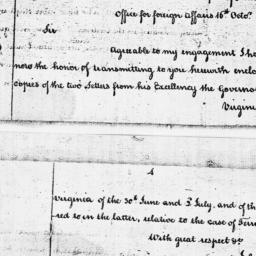 Office for foreign Affairs 16th Octo.
Sir
Agreeable to my engagement I ha
now the honor of transmitting to you herewith enclo
copies of the two Letters from his Excellency the Governo
Virgini
Virginia of the 30th June and 3d July, and of th
red to in the latter, relative to the case of
With great respect &c